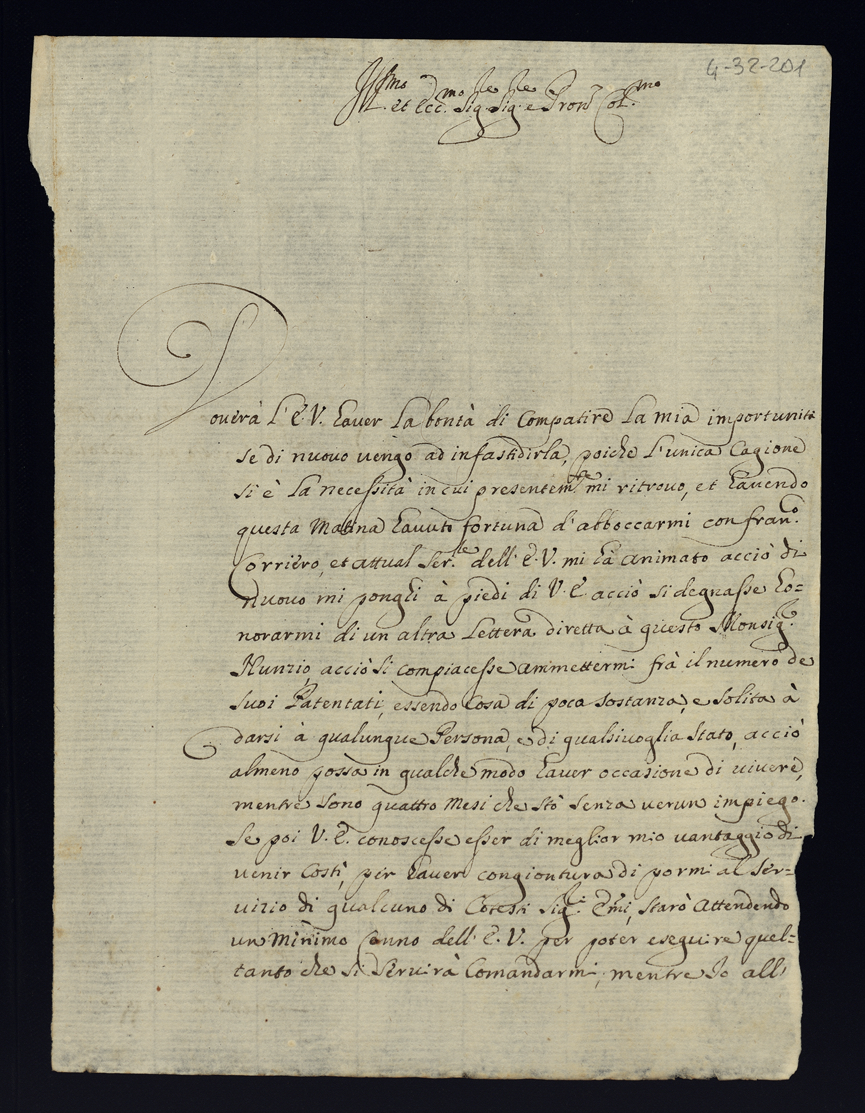 4-32-201
Ill.mo et Ecc.mo Sig.re Sig.re e Pron Col.mo
Doverà l'E.V. haver la bontà di compatire la mia importunità
se di nuovo vengo ad infastidirla, poiche l'unica cagione
si è la necessità in cui presentem.te mi ritrovo, et havendo
questa matina havuto fortuna d'abboccarmi con fran.co
Corriero, et attual Ser.le dell'E.V. mi hà animato acciò di
nuovo mi ponghi à piedi di V.E. acciò si degnasse ho=
norarmi di un altra lettera diretta à questo Monsig.r
Nunzio, acciò si compiacesse ammettermi frà il numero de
suoi Patentati, essendo cosa di poca sostanza, e solita à
darsi à qualunque Persona, e di qualsivoglia stato, acciò
almeno possa in qualche modo haver occasione di vivere,
mentre sono quattro mesi che stò senza verun impiego.
Se poi V.E. conoscesse esser di meglior mio vantaggio di
venir costì, per haver congiontura di pormi al ser=
vizio di qualcuno di cotesti Sig.ri Emi, starò attendendo
un minimo cenno dell'E.V. per poter eseguire quel=
tanto che si servirà comandarmi, mentre io all'